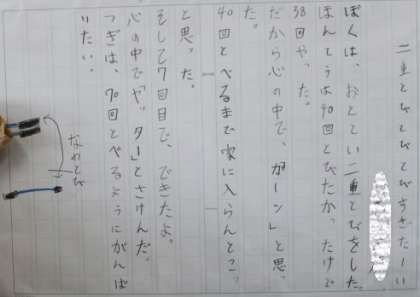 二重とびとびとびすぎたーい
ぼくは、おととい二重とびをした。
ほんとうは40回とびたかったけど
38回やった。
だから心の中で、「ガーン」と思っ
た。
40回とべるまで家に入らんとこっ
と思った。
そして7回目で、できたよ。
心の中で「ヤッター」とさけんだ。
つぎは、70回とべるようにがんば
りたい。
なわとび